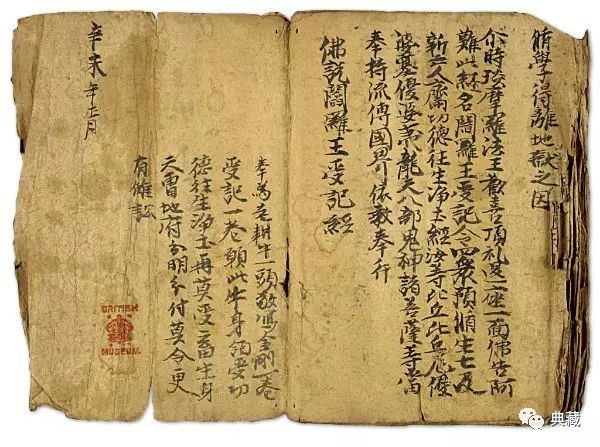 脩學得離地獄之因
尒時琰摩羅法王歡喜頂礼退座一面佛告阿
難此經名閻羅王受記令四眾預脩生七及
新亡人齋功德往生淨土經汝等比丘比丘尼優
婆塞優婆夷龍天八部鬼神諸菩薩等當
奉持流傳國界依教奉行
佛說閻羅王受記經
奉為老耕牛一頭敬寫金剛一卷
受記一卷願此牛身領受功
德往生淨土再莫受畜生身
天曹地府分明分付莫令更
有讎訟
辛未年正月
BRITISH
MUSEUM
典藏